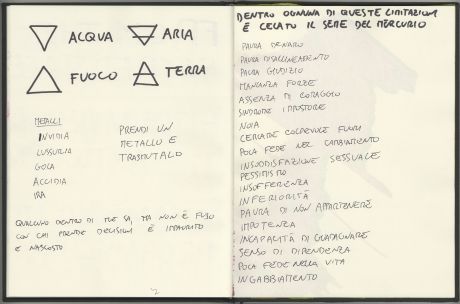 ACQUA ARIA
FUOCO TERRA
METALLI
INVIDIA
LUSSURIA
GOLA
ACCIDIA
IRA
PRENDI UN
METALLO E
TRASMUTALO
QUALCUNO DENTRO DI TE SA, MA NON È FUSO
CON CHI PRENDE DECISIONI È IMPAURITO
E NASCOSTO
2
DENTRO OGNUNA DI QUESTE LIMITAZIONI
È CELATO IL SEME DEL MERCURIO
PAURA DENARO
PAURA DISALLINEAMENTO
PAURA GIUDIZIO
MANCANZA FORZE
ASSENZA DI CORAGGIO
SINDROME IMPOSTORE
NOIA
CERCARE COLPEVOLE FUORI
POCA FEDE NEL CAMBIAMENTO
INSODDISFAZIONE SESSUALE
PESSIMISMO
INSOFFERENZA
INFERIORITÀ
PAURA DI NON APPARTENERE
IMPOTENZA
INCAPACITÀ DI GUADAGNARE
SENSO DI DIPENDENZA
POCA FEDE NELLA VITA
INGABBIAMENTO